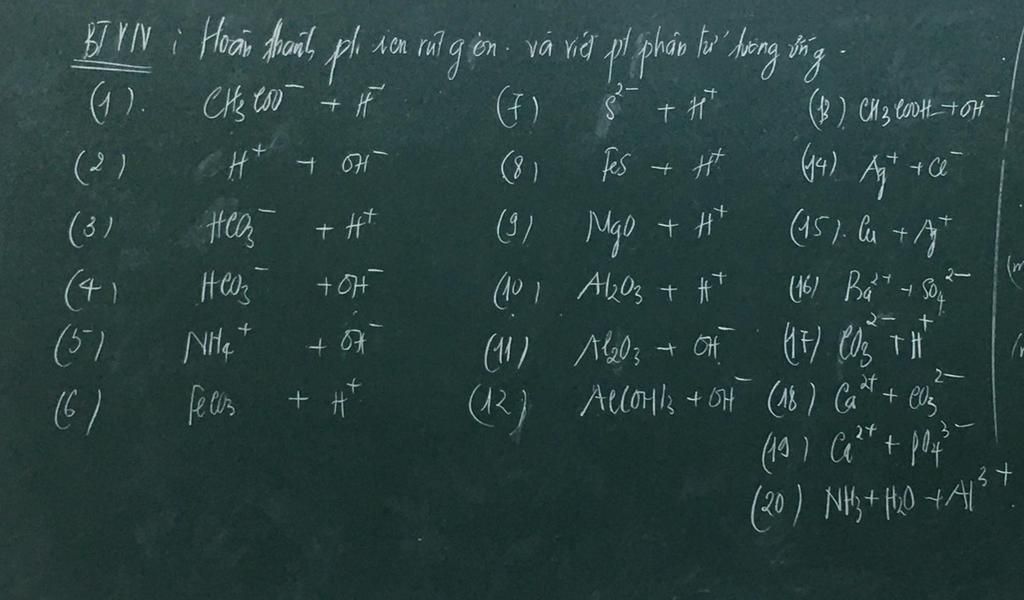 BTVN : Hoàn thành pt ion rút gọn và viết pt phân tử tương ứng.
(1). CH₃COO⁻ + H⁻
(2) H⁺ + OH⁻
(3) HCO₃⁻ + H⁺
(4) HCO₃⁻ + OH⁻
(5) NH₄⁺ + OH⁻
(6) FeCO₃ + H⁺
(7) S²⁻ + H⁺
(8) FeS + H⁺
(9) MgO + H⁺
(10) Al₂O₃ + H⁺
(11) Al₂O₃ + OH⁻
(12) Al(OH)₃ + OH⁻
(13) CH₃COOH + OH⁻
(14) Ag⁺ + Cl⁻
(15). Cu + Ag⁺
(16) Ba²⁺ + SO₄²⁻
(17) CO₃²⁻ + H⁺
(18) Ca²⁺ + CO₃²⁻
(19) Ca²⁺ + PO₄³⁻
(20) NH₃ + H₂O + Al³⁺